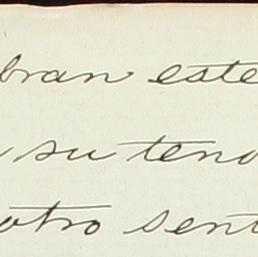 bran este
su teno
otro sent